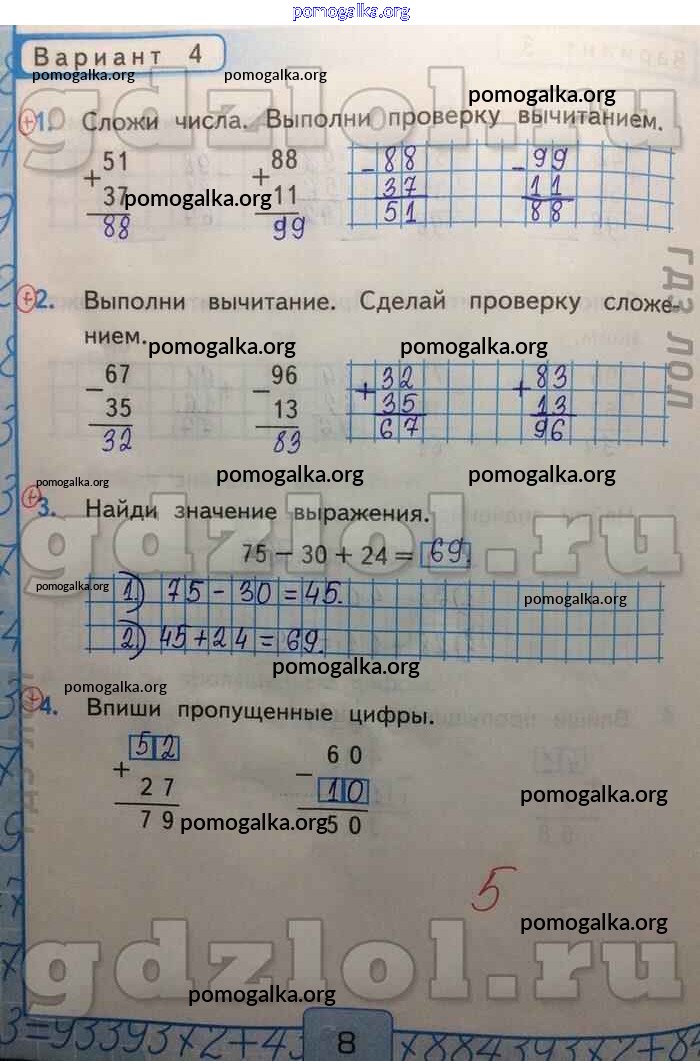 pomogalka.org
Вариант 4
pomogalka.org pomogalka.org
gdzlol.ru
pomogalka.org
+1. Сложи числа. Выполни проверку вычитанием.
51 88 88 99
+ + - -
37 11 37 11
pomogalka.org
88 99 51 88
гдз лол
+2. Выполни вычитание. Сделай проверку сложе-
нием.
pomogalka.org pomogalka.org
67 96 32 83
- - + +
35 13 35 13
32 83 67 96
pomogalka.org pomogalka.org pomogalka.org
+3. Найди значение выражения.
gdzlol.ru
75 − 30 + 24 = 69.
pomogalka.org pomogalka.org
1) 75 − 30 = 45.
2) 45 + 24 = 69.
pomogalka.org
pomogalka.org
+4. Впиши пропущенные цифры.
гдз лол
52 60
+ −
27 10
pomogalka.org
79 50
pomogalka.org
5
pomogalka.org
gdzlol.ru
pomogalka.org
3=93393x2+43
8
x884393x2+8